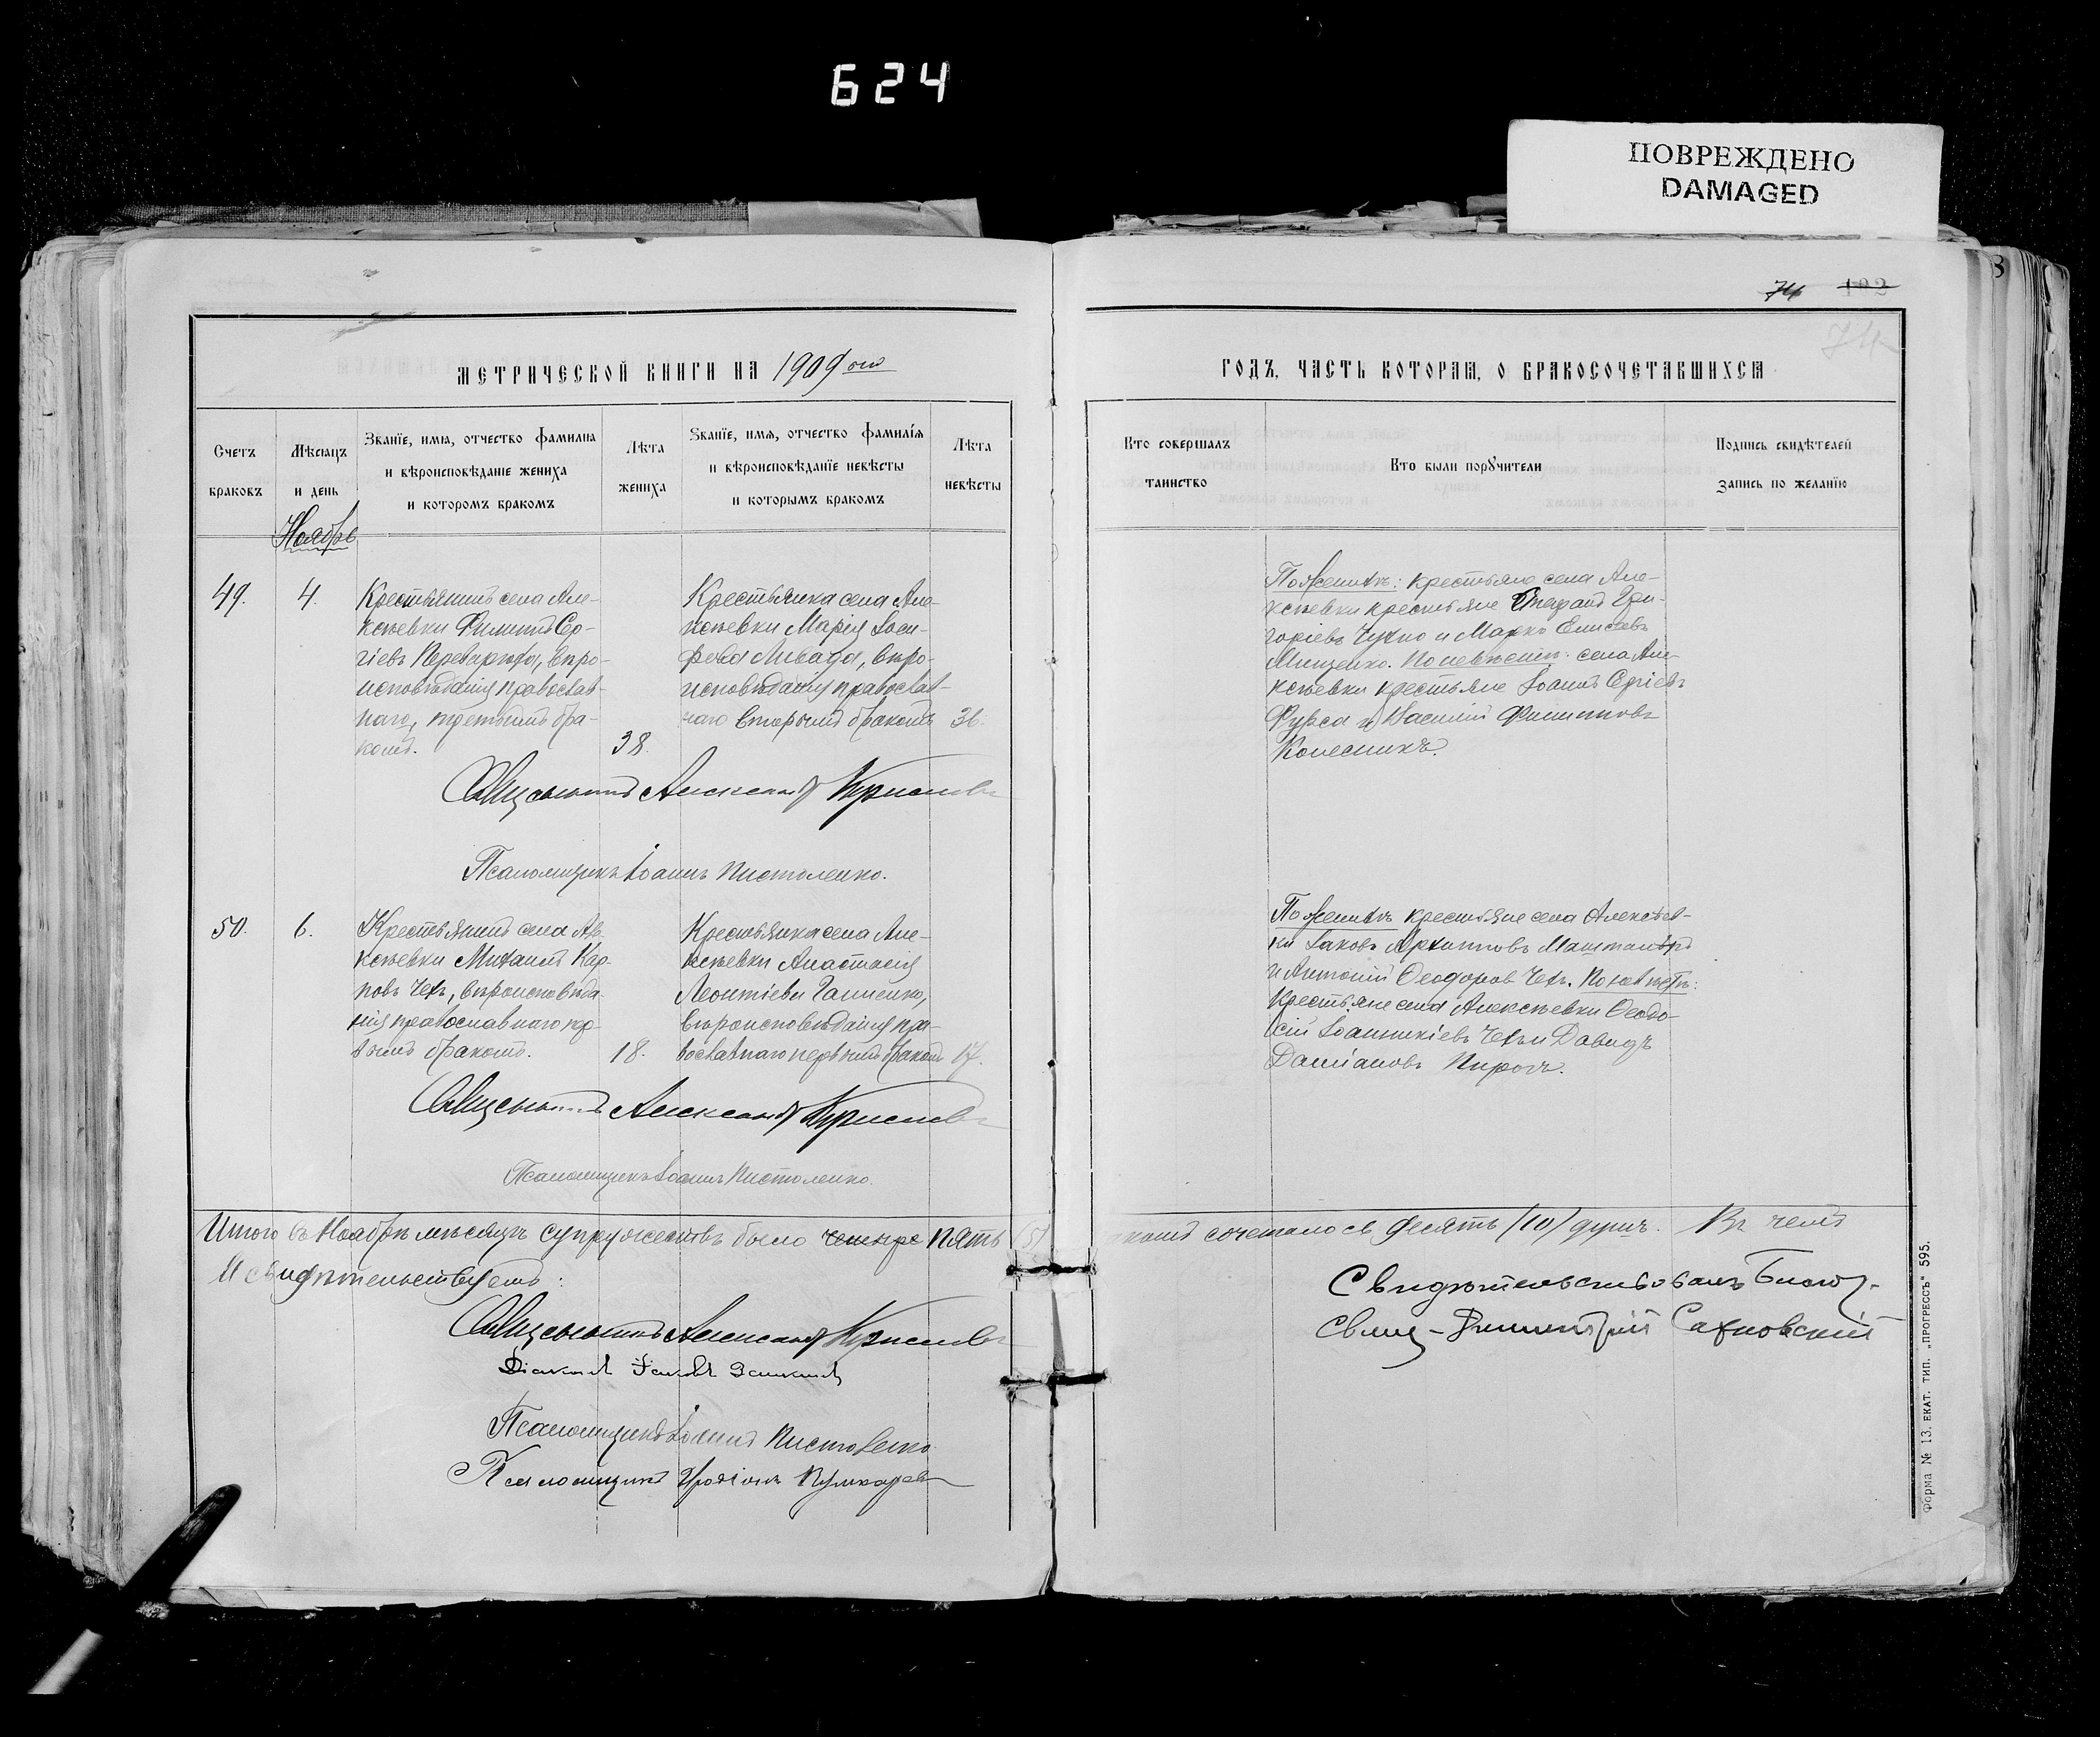 624
ПОВРЕЖДЕНО
DAMAGED
74 192
74
МЕТРИЧЕСКОЙ КНИГИ НА 1909 ый
ГОДЪ, ЧАСТЬ ВТОРАЯ, О БРАКОСОЧЕТАВШИХСЯ
Счетъ браковъ
Мѣсяцъ и день
Званіе, имя, отчество фамилія и вѣроисповѣданіе жениха и которомъ бракомъ
Лѣта жениха
Званіе, имя, отчество фамилія и вѣроисповѣданіе невѣсты и которымъ бракомъ
Лѣта невѣсты
Кто совершалъ таинство
Кто были поручители
Подпись свидѣтелей запись по желанію
Ноябрь
49.
4.
Крестьянинъ села Але-
ксѣевки Филиппъ Сер-
гіевъ, вѣро-
исповѣданія православ-
наго, третьимъ бра-
комъ.
38.
Крестьянка села Але-
ксѣевки Марія Іоси-
фова Ливада, вѣро-
исповѣданія православ-
наго вторымъ бракомъ
36.
По женихѣ: крестьяне села Але-
ксѣевки крестьяне Стефанъ Гри-
горіевъ и Марко Елисѣевъ
Мищенко. По невѣстѣ: села Але-
ксѣевки крестьяне Іоаннъ Сергіевъ
Фурса и Василій Филипповъ
Колесникъ.
Священникъ Александръ
Псаломщикъ Іоаннъ Пистоленко.
50.
6.
Крестьянинъ села Але-
ксѣевки Михаилъ Кар-
повъ Чехъ, вѣроисповѣда-
нія православнаго пер-
вымъ бракомъ.
18.
Крестьянка села Але-
ксѣевки Анастасія
Леонтіева Ганненко,
вѣроисповѣданія пра-
вославнаго первымъ бракомъ
17.
По женихѣ крестьяне села Алексѣев-
ки Іаковъ Архиповъ
и Антоній Ѳеодоровъ Чехъ. По невѣстѣ:
крестьяне села Алексѣевки Ѳеодо-
сій Іоанникіевъ Чехъ и Давидъ
Даміановъ Пирогъ.
Священникъ Александръ
Псаломщикъ Іоаннъ Пистоленко.
Итого въ Ноябрѣ мѣсяцѣ супружествъ было четыре пять (5)
коимъ сочеталось десять (10) душъ. Въ чемъ
и свидѣтельствуемъ:
Священникъ Александръ
Діаконъ Іаковъ
Псаломщикъ Іоаннъ Пистоленко
Псаломщикъ
Свидѣтельствовалъ Благоч.
Свящ-Димитрій Сахновскій
Форма № 13. ЕКАТ. ТИП. „ПРОГРЕССЪ“ 595.